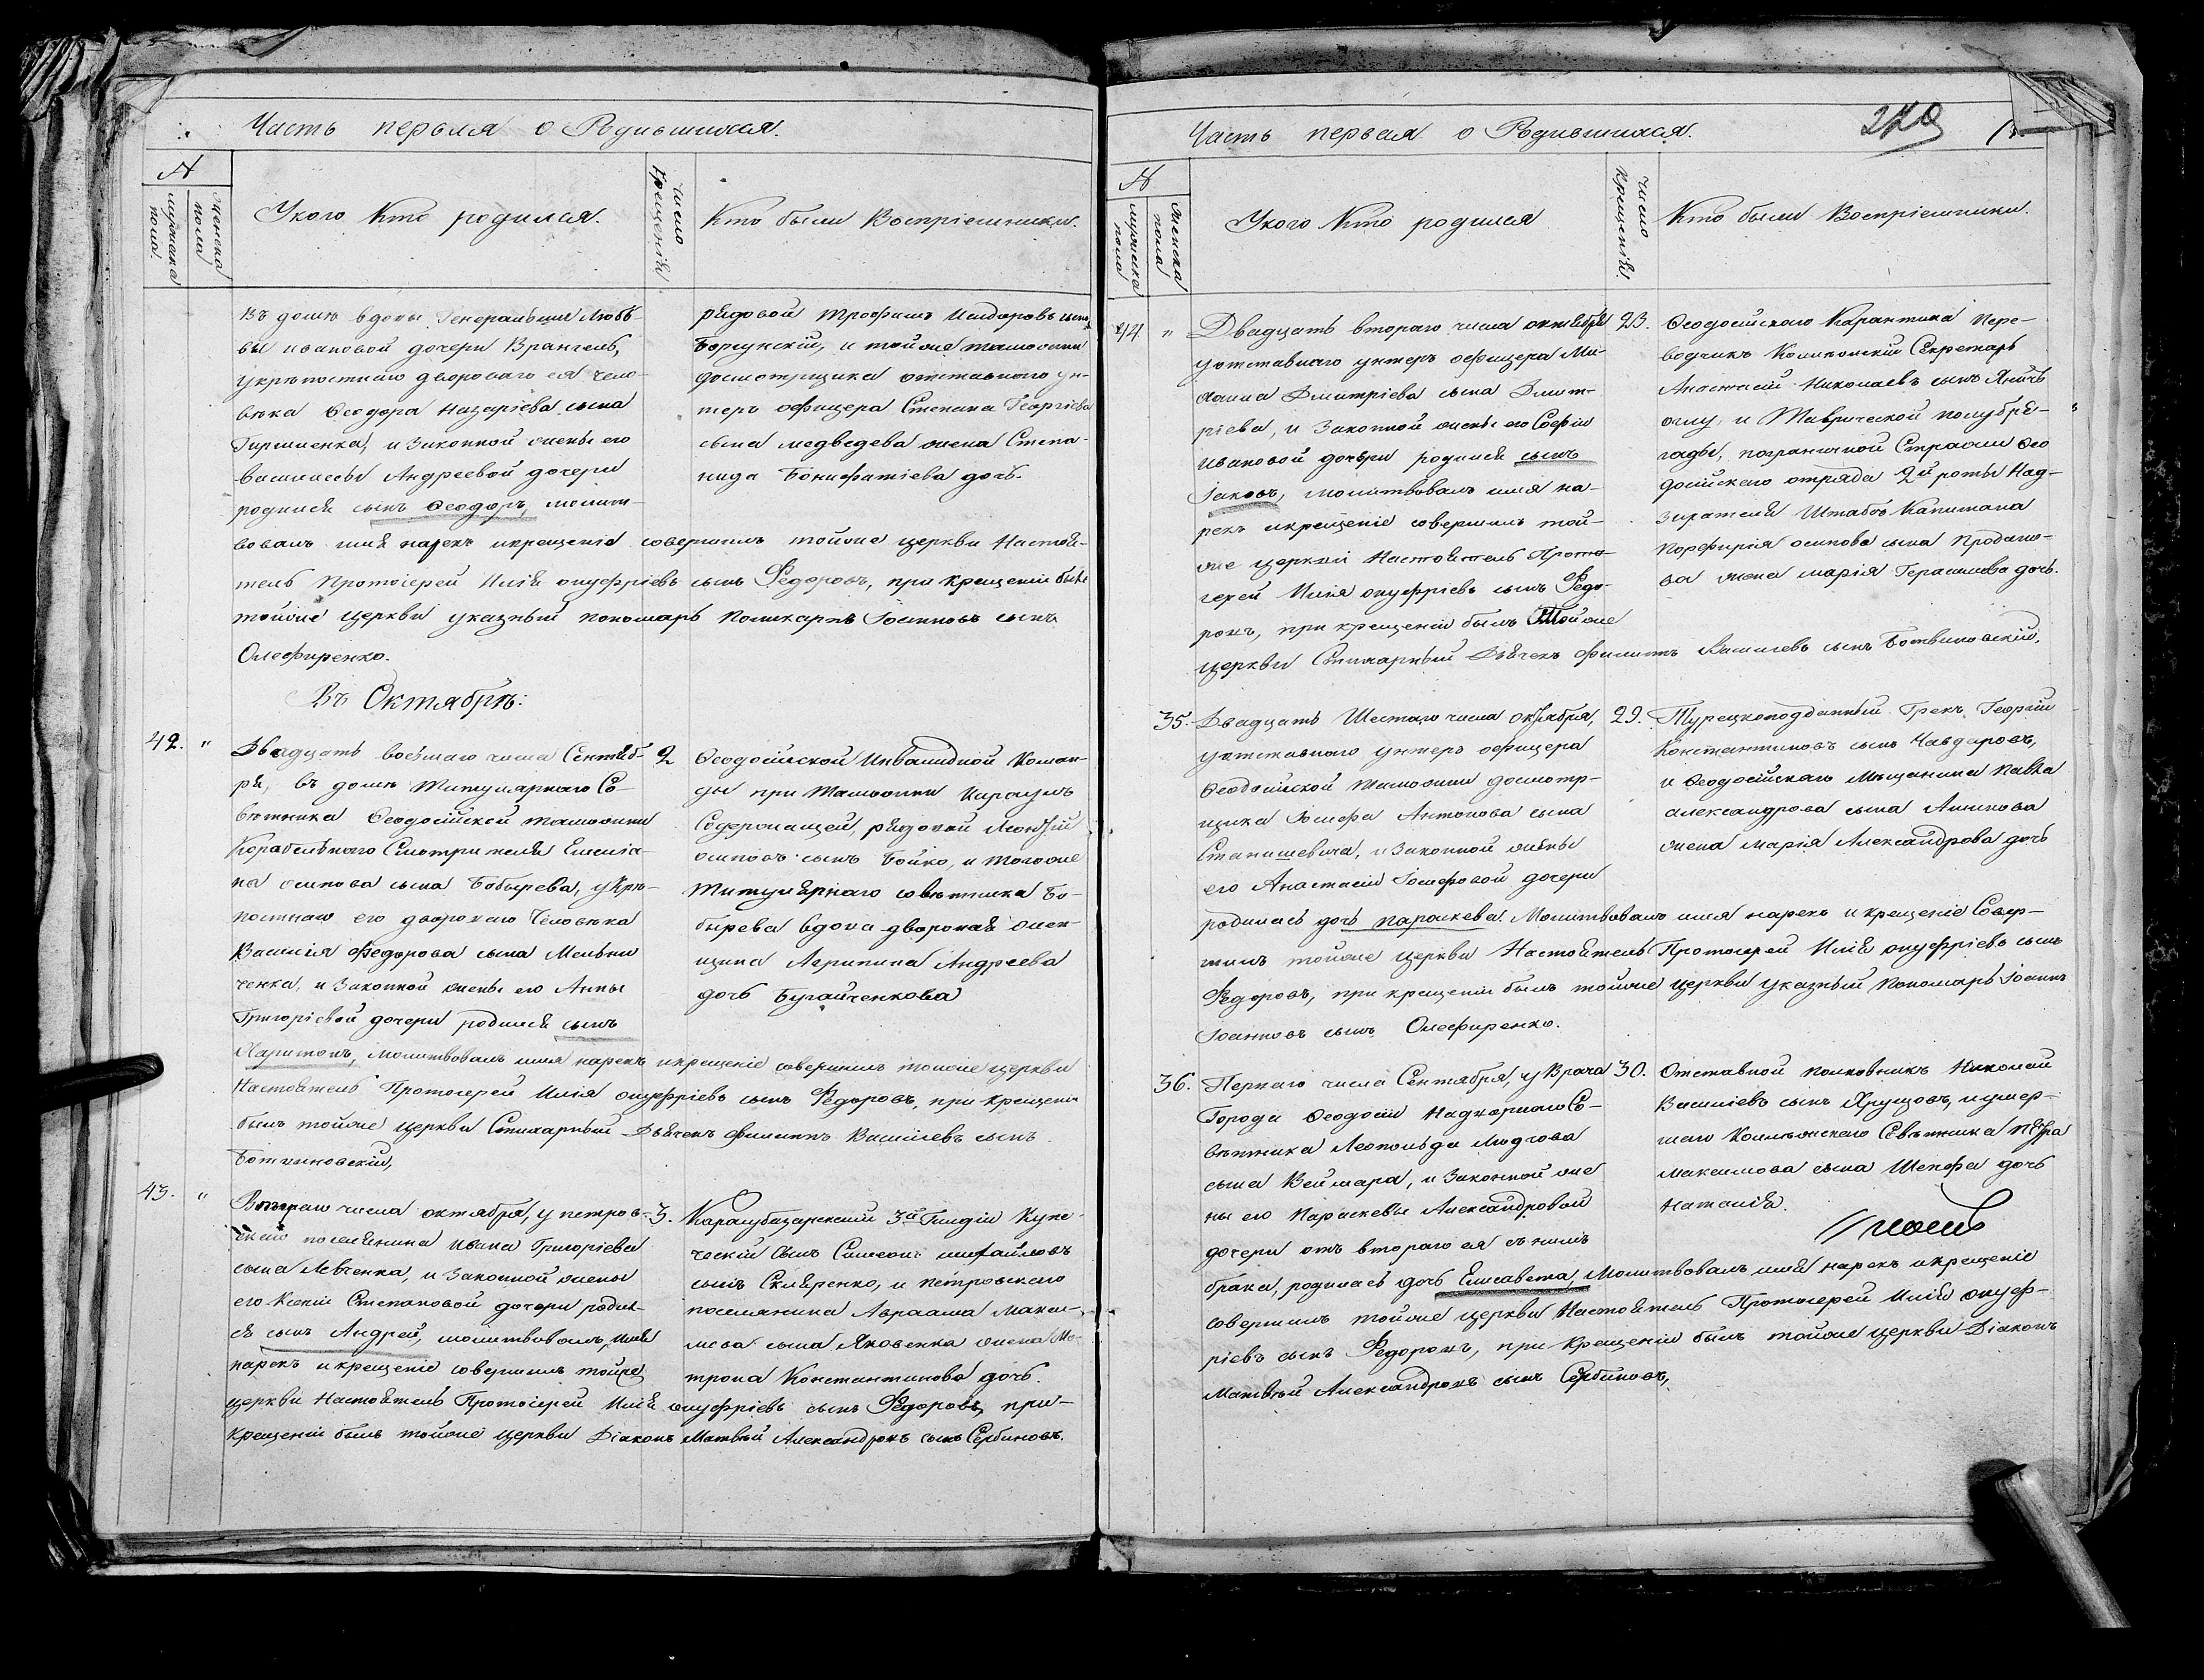 Часть первая о Родившихся.
№
мужеска пола
женска пола
У кого кто родился.
число крещенія
Кто были Воспріемники.
Въ домѣ вдовы Генеральши Любо-
вы ивановой дочери Врангель,
укрѣпостнаго двороваго ея чело-
вѣка Ѳеодора Назаріева сына
и Законной жены его
Василисы Андреевой дочери
родился сынъ Ѳеодоръ, молит-
вовалъ имя нарекъ икрещеніе совершилъ тойже церкви Настоя-
тель Протоіерей Илія онуфріевъ сынъ Ѳедоровъ, при крещеніи былъ
тойже церкви указный пономарь Поликарпъ Іоанновъ сынъ
Олефиренко.
рядовой Трофимъ Исидоровъ сынъ
и тойже таможни
досмотрщика отставного ун-
теръ офицера Степана Георгіева
сына медведева жена Степа-
нида Бонифатіева дочь.
Въ Октябрѣ:
42. "
Двадцать восьмаго числа Сентяб-
ря, въ домѣ Титулярнаго Со-
вѣтника Ѳеодосійской таможни
Корабельнаго Смотрителя Емелія-
на осипова сына Бобырева, укрѣ-
постнаго его двороваго Человѣка
Василія Федорова сына Мельни
ченка, и Законной жены его Анны
Григорьевой дочери родился сынъ
Харитонъ, молитвовалъ имя нарекъ икрещеніе совершилъ тойже церкви
Настоятель Протоіерей Илія онуфріевъ сынъ Ѳедоровъ, при крещеніи
былъ тойже церкви Стихарный Дьячекъ филиппъ Васильевъ сынъ
Ботвиновскій,
2
Ѳеодосійской Инвалидной Коман-
ды при таможни Караулъ
Содержащей, рядовой Леонтій
осиповъ сынъ Бойко, и тогоже
Титулярнаго совѣтника Бо-
бырева вдова дворовая жен-
щина Агрипина Андреева
дочь Бугайченкова
43. "
Втораго числа октября, у петров-
скаго поселянина Ивана Григоріева
сына Левченка, и Законной жены
его Ксеніи Степановой дочери родил-
ся сынъ Андрей, молитвовалъ, имя
нарекъ икрещеніе совершилъ тойже
церкви Настоятель Протоіерей Илія онуфріевъ сынъ Ѳедоровъ, при-
крещеніи былъ тойже церкви Діаконъ Матвѣй Александровъ сынъ Сербиновъ.
3.
Карасубазарскій 3й Гильдіи Купе-
ческій Сынъ Симеонъ михайловъ
сынъ Скляренко, и петровскаго
поселянина Авраама Макси-
мова сына Яковенка жена Ма-
трона Константинова дочь.
Часть первая о Родившихся.
№
мужеска пола
женска пола
У кого кто родился
число крещенія.
Кто были Воспріемники.
44 "
Двадцать втораго числа октября
уотставнаго унтеръ офицера Ми-
хаила Дмитріева сына Дмит-
ріева, и Законной жены его Софіи
Ивановой дочери родился сынъ
Іаковъ, молитвовалъ имя на-
рекъ икрещеніе совершилъ той-
же церкви Настоятель Прото-
іерей Илія онуфріевъ сынъ Ѳедо-
ровъ, при крещеніи былъ Тойже
церкви Стихарный Дьячекъ филиппъ Васильевъ сынъ Ботвиновскій.
23.
Ѳеодосійскаго Карантина Пере-
водчикъ Колежскій Секретарь
Анастасій Николаевъ сынъ
оглу, и Таврической полубри-
гады, пограничной Стражи Ѳео
досійскаго отряда 2й роты Над-
зирателя Штабсъ Капитана
Порфирія осипова сына
жена марія Герасимова дочь.
35.
Двадцать Шестаго числа октября,
уотставнаго унтеръ офицера
Ѳеодосійской таможни досмотр-
щика Іосифа Антонова сына
Станишевича, и Законной жены
его Анастасіи Іосифовой дочери
родилась дочь параскева. Молитвовалъ имя нарекъ икрещеніе Совер-
шилъ тойже церкви Настоятель Протоіерей Илія онуфріевъ сынъ
Ѳедоровъ, при крещеніи былъ тойже церкви указный пономарь Іоаннъ
Іоанновъ сынъ Олефиренко.
29.
Турецкоподданный Грекъ Георгій
Константиновъ сынъ Чавдаровъ,
и Ѳеодосійскаго Мѣщанина Павла
александрова сына
жена марія Александрова дочь
36.
Перваго числа Сентября, у Врача
Города Ѳеодосіи Надворнаго Со-
вѣтника Леопольда
сына Веймара, и Законной же
ны его Параскевы Александровой
дочери отъ втораго ея съ нимъ
брака, родилась дочь Елисавета, Молитвовалъ имя нарекъ икрещеніе
совершилъ тойже церкви Настоятель Протоіерей Илія онуф-
ріевъ сынъ Ѳедоровъ, при крещеніи былъ тойже церкви Діаконъ
Матвѣй Александровъ сынъ Сербиновъ,
30.
Отставной полковникъ Николай
Василіевъ сынъ Хрущовъ, и умер-
шаго Колежскаго Совѣтника Петра
максимова сына Шепфа дочь
Наталія.